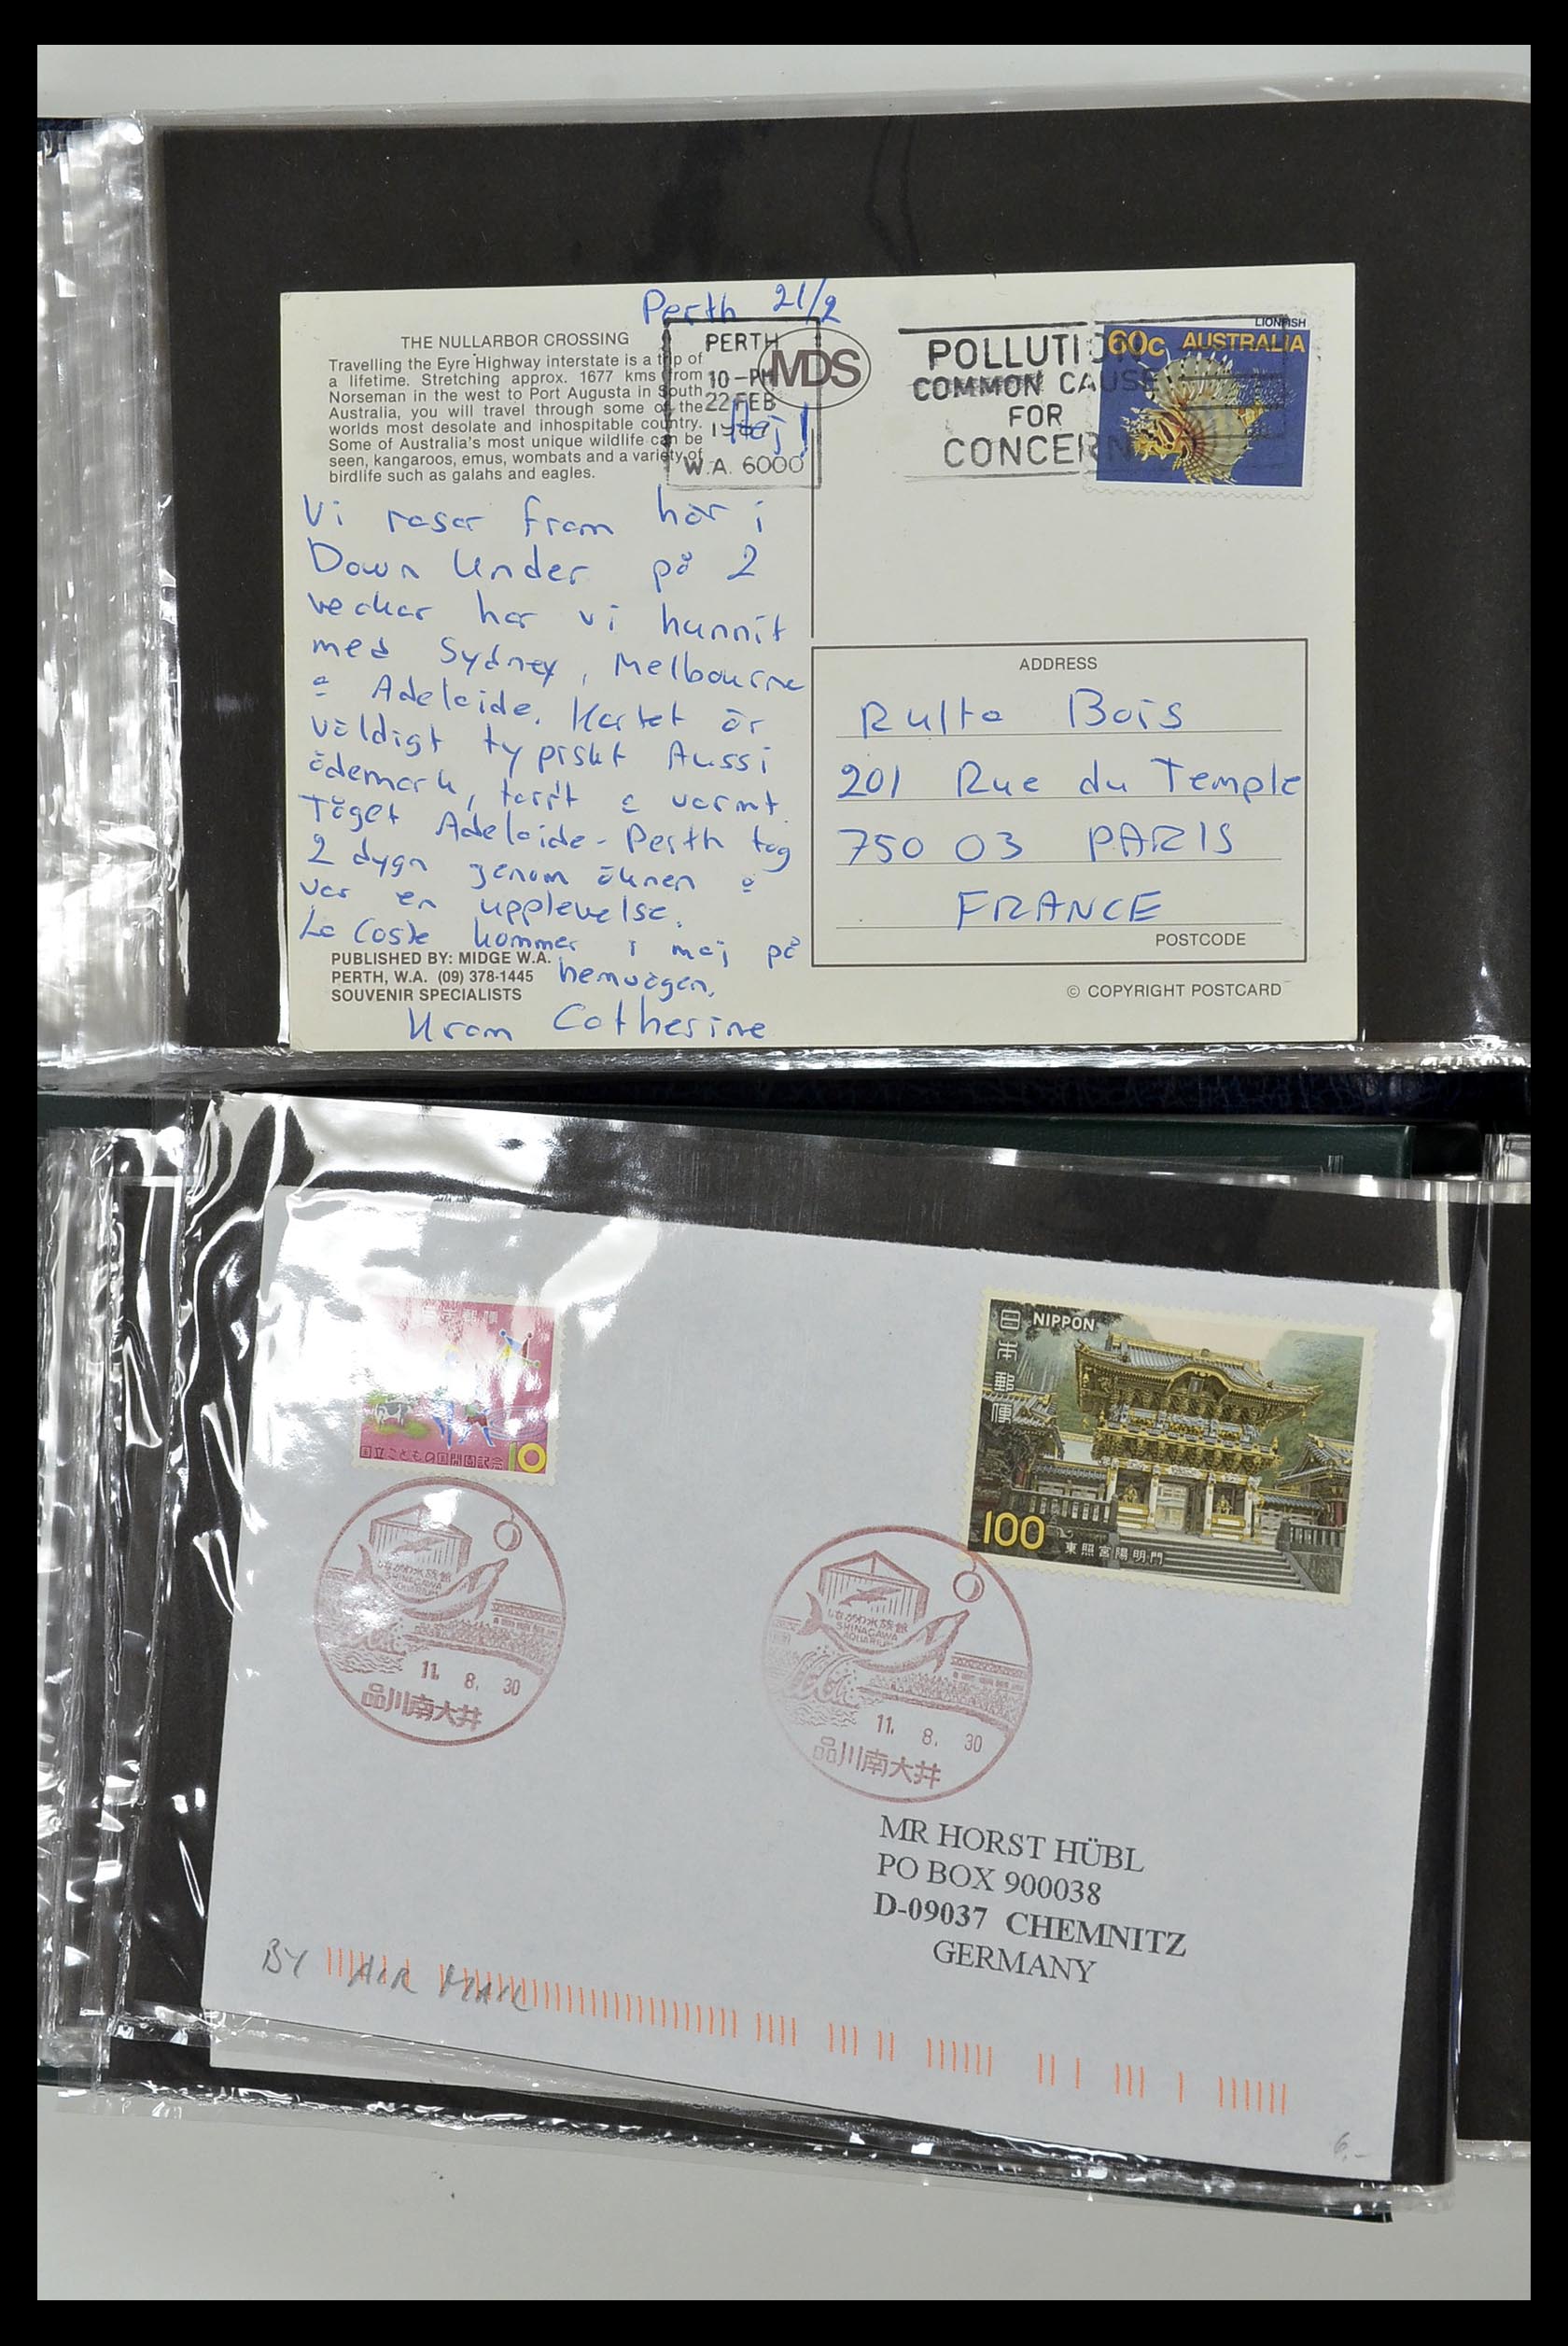 Perth 21/2
THE NULLARBOR CROSSING
Travelling the Eyre Highway interstate is a trip of
a lifetime. Stretching approx. 1677 kms from
Norseman in the west to Port Augusta in South
Australia, you will travel through some of the
worlds most desolate and inhospitable country.
Some of Australia's most unique wildlife can be
seen, kangaroos, emus, wombats and a variety of
birdlife such as galahs and eagles.
PERTH
10-PM
22 FEB
W.A. 6000
MDS
Hej!
POLLUTION
COMMON CAUSE
FOR
CONCERN
LIONFISH
60c AUSTRALIA
Vi reser fram här i
Down Under på 2
veckor har vi hunnit
med Sydney, Melbourne
o Adelaide. Kortet är
väldigt typiskt Aussi
ödemark, torrt o varmt.
Tåget Adelaide-Perth tog
2 dygn genom öknen o
var en upplevelse.
La Coste kommer i maj på
hemvägen.
Kram Catherine
PUBLISHED BY: MIDGE W.A.
PERTH, W.A. (09) 378-1445
SOUVENIR SPECIALISTS
ADDRESS
Rulta Bois
201 Rue du Temple
750 03 PARIS
FRANCE
POSTCODE
© COPYRIGHT POSTCARD
国立こどもの国開園記念 10
日本郵便 NIPPON
100 東照宮陽明門
しながわ水族館
SHINAGAWA
AQUARIUM
11. 8. 30
品川南大井
しながわ水族館
SHINAGAWA
AQUARIUM
11. 8. 30
品川南大井
MR HORST HÜBL
PO BOX 900038
D-09037 CHEMNITZ
GERMANY
BY AIR MAIL
6,-